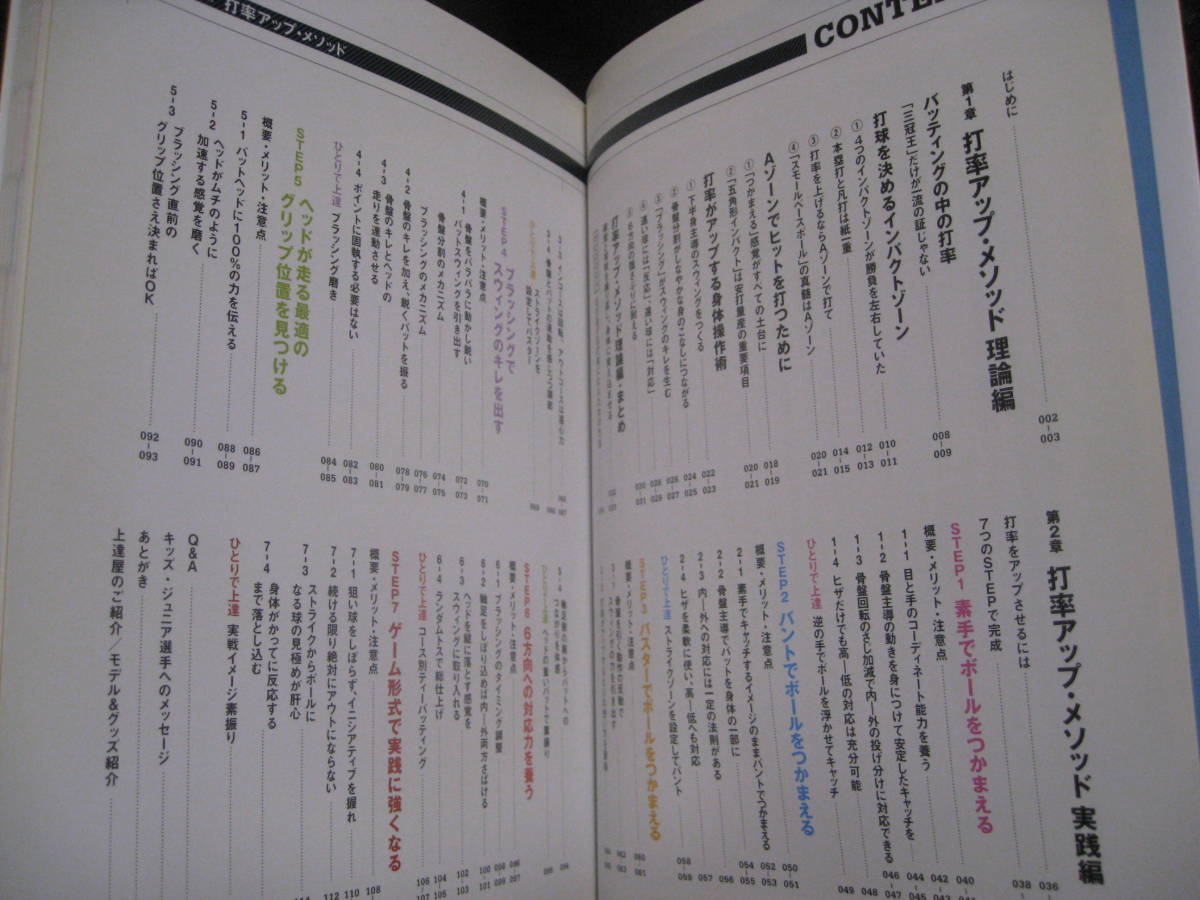 CONTE
はじめに
002-003
第1章 打率アップ・メソッド 理論編
バッティングの中の打率
「三冠王」だけが一流の証じゃない
008-009
打球を決めるインパクトゾーン
① 4つのインパクトゾーンが勝負を左右していた
010-011
② 本塁打と凡打は紙一重
012-013
③ 打率を上げるならAゾーンで打て
014-015
④ 「スモールベースボール」の真髄はAゾーン
020-021
Aゾーンでヒットを打つために
① 「つかまえる」感覚がすべての土台に
018-019
② 「五角形インパクト」は安打量産の重要項目
020-021
打率がアップする身体操作術
① 下半身主導のスウィングをつくる
022-023
② 骨盤分割がしなやかな身のこなしにつながる
024-025
③ 「ブラッシング」がスウィングのキレを生む
④ 速い球には「反応」、遅い球には「対応」
打率アップ・メソッド理論編・まとめ
第2章 打率アップ・メソッド 実践編
打率をアップさせるには
7つのSTEPで完成
036
038
STEP1 素手でボールをつかまえる
概要・メリット・注意点
040
1-1 目と手のコーディネート能力を養う
042
1-2 骨盤主導の動きを身につけて安定したキャッチを
044
1-3 骨盤回転のさじ加減で内-外の投げ分けに対応できる
046
1-4 ヒザだけでも高-低の対応は充分可能
ひとりで上達 逆の手でボールを浮かせてキャッチ
STEP2 バントでボールをつかまえる
概要・メリット・注意点
050-051
2-1 素手でキャッチするイメージのままバントでつかまえる
052-053
2-2 骨盤主導でバットを身体の一部に
054-055
2-3 内-外への対応には一定の法則がある
2-4 ヒザを柔軟に使い、高-低へも対応
ひとりで上達 ストライクゾーンを設定してバント
STEP3 バスターでボールをつかまえる
概要・メリット・注意点
打率アップ・メソッド
ストライクゾーンを
設定してバスター
STEP4 ブラッシングで
スウィングのキレを出す
概要・メリット・注意点
070-071
4-1 骨盤をバラバラに動かし鋭い
バットスウィングを引き出す
072-073
骨盤分割のメカニズム
074-075
ブラッシングのメカニズム
076-077
4-2 骨盤のキレを加え、鋭くバットを振る
078-079
4-3 骨盤のキレとヘッドの
走りを連動させる
080-081
4-4 ポイントに固執する必要はない
082-083
ひとりで上達 ブラッシング磨き
084-085
STEP5 ヘッドが走る最適の
グリップ位置を見つける
概要・メリット・注意点
086-087
5-1 バットヘッドに100%の力を伝える
088-089
5-2 ヘッドがムチのように
加速する感覚を磨く
090-091
5-3 ブラッシング直前の
グリップ位置さえ決まればOK
092-093
STEP6 6方向への対応力を養う
概要・メリット・注意点
6-1 ブラッシングのタイミング調整
6-2 軸足をしぼり込めば内-外両方さばける
100-101
6-3 ヘッドを縦に落とす感覚を
スウィングに取り入れる
102-103
6-4 ランダムトスで総仕上げ
104-105
ひとりで上達 コース別ティーバッティング
106-107
STEP7 ゲーム形式で実践に強くなる
概要・メリット・注意点
108
7-1 狙い球をしぼらず、イニシアティブを握れ
110
7-2 続ける限り絶対にアウトにならない
112
7-3 ストライクからボールに
なる球の見極めが肝心
7-4 身体がかってに反応する
まで落とし込む
ひとりで上達 実戦イメージ素振り
Q&A
キッズ・ジュニア選手へのメッセージ
あとがき
上達屋のご紹介／モデル&グッズ紹介